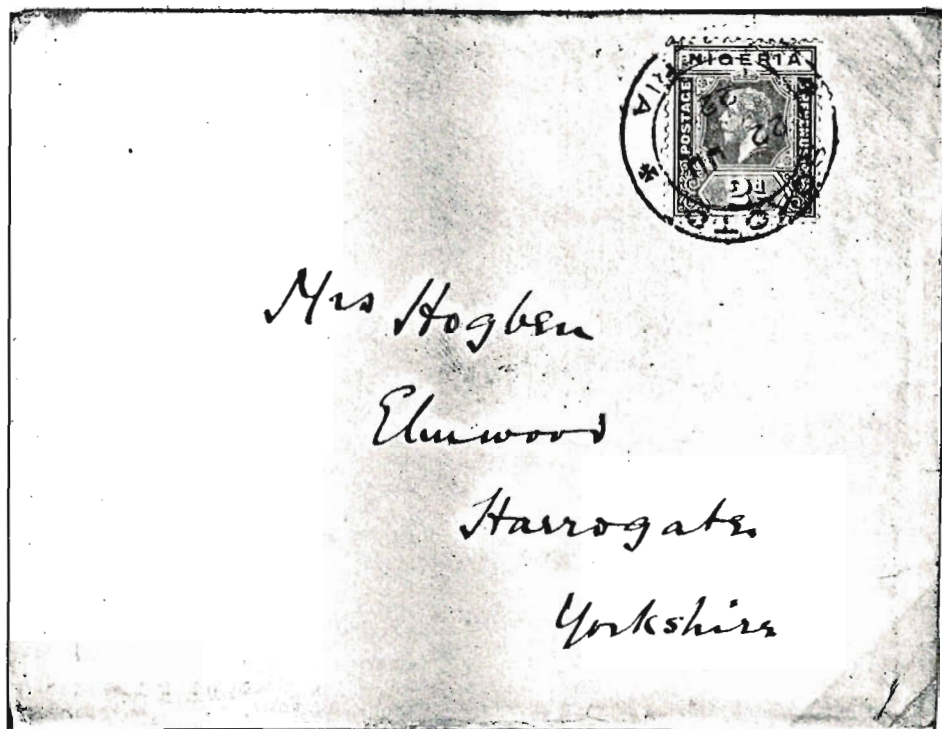 NIGERIA
POSTAGE
2d
Mrs Hogben
Elmwood
Harrogate
Yorkshire